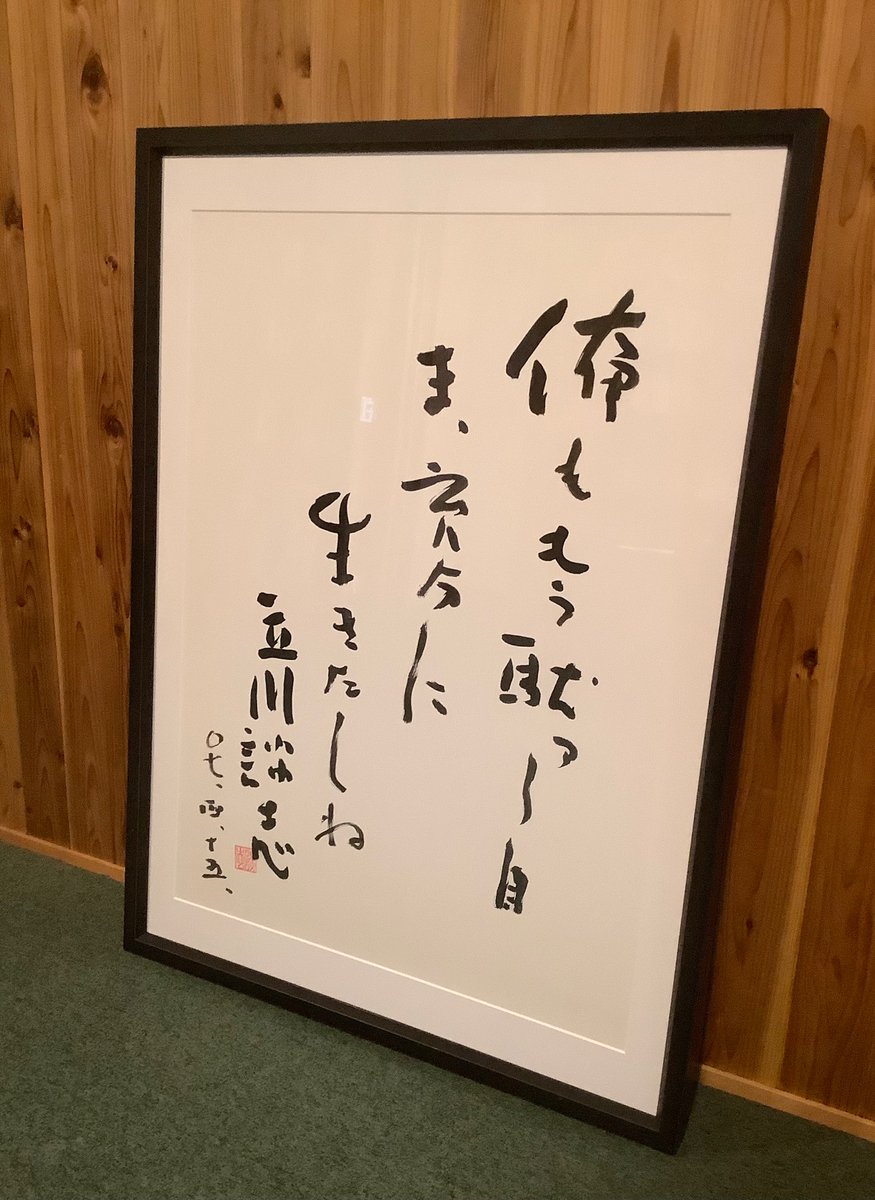 俺ももう駄ァ〜目
ま、充分に
生きたしね
立川談志
〇七、四、十五、